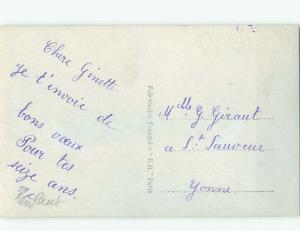 Chere Ginette
je t'envoie de
bons vœux
Pour tes
seize ans.
Fabrication Française - E.R. - Paris
Mlle G. Giraut
a St Sauveur
Yonne